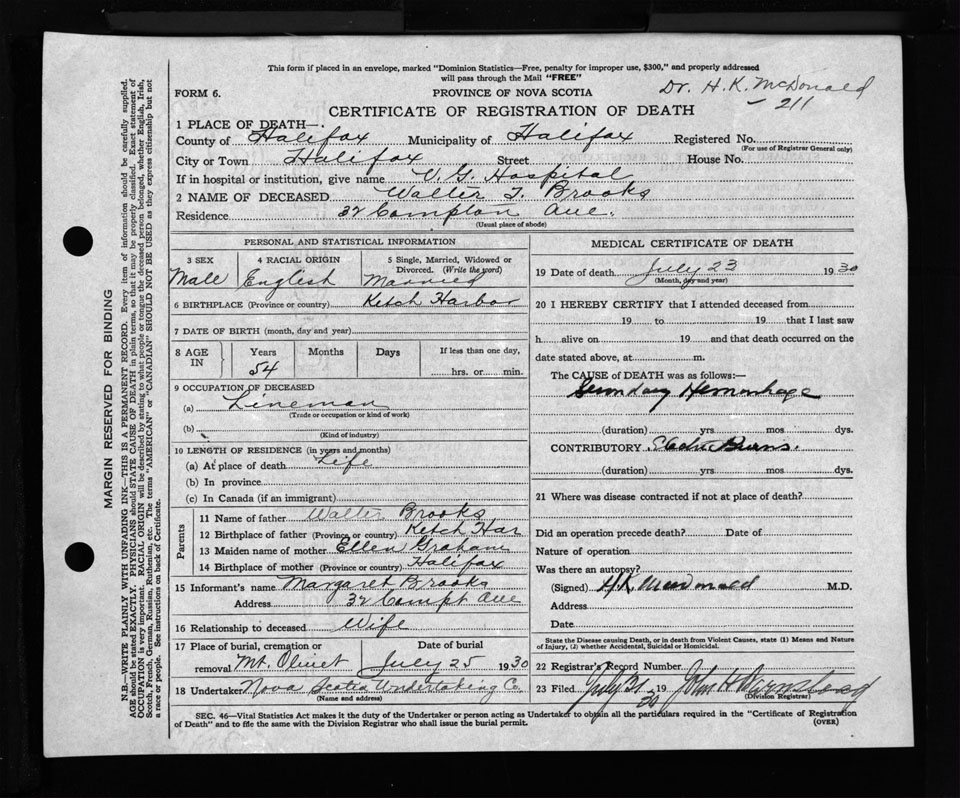 This form if placed in an envelope, marked "Dominion Statistics—Free, penalty for improper use, $300," and properly addressed
will pass through the Mail "FREE"
Dr. H. K. McDonald
- 211
FORM 6.
PROVINCE OF NOVA SCOTIA
CERTIFICATE OF REGISTRATION OF DEATH
1 PLACE OF DEATH—
County of Halifax Municipality of Halifax Registered No.
(For use of Registrar General only)
City or Town Halifax Street House No.
If in hospital or institution, give name V. G. Hospital
2 NAME OF DECEASED Walter J. Brooks
Residence 32 Compton Ave.
(Usual place of abode)
PERSONAL AND STATISTICAL INFORMATION
3 SEX 4 RACIAL ORIGIN 5 Single, Married, Widowed or
Divorced. (Write the word)
Male English Married
6 BIRTHPLACE (Province or country) Ketch Harbor
7 DATE OF BIRTH (month, day and year)
8 AGE IN Years Months Days If less than one day,
54 hrs. or min.
9 OCCUPATION OF DECEASED
(a) Lineman
(Trade or occupation or kind of work)
(b)
(Kind of industry)
10 LENGTH OF RESIDENCE (in years and months)
(a) At place of death Life
(b) In province
(c) In Canada (if an immigrant)
Parents
11 Name of father Walter Brooks
12 Birthplace of father (Province or country) Ketch Har
13 Maiden name of mother Ellen Graham
14 Birthplace of mother (Province or country) Halifax
15 Informant's name Margaret Brooks
Address 32 Compt Ave
16 Relationship to deceased Wife
17 Place of burial, cremation or Date of burial
removal Mt. Olivet July 25 1930
18 Undertaker Nova Scotia Undertaking Co
(Name and address)
MEDICAL CERTIFICATE OF DEATH
19 Date of death July 23 1930
(Month, day and year)
20 I HEREBY CERTIFY that I attended deceased from
19 to 19 that I last saw
h alive on 19 and that death occurred on the
date stated above, at m.
The CAUSE of DEATH was as follows:—
Secondary Hemorrhage
(duration) yrs mos dys.
CONTRIBUTORY Burns.
(duration) yrs. mos. dys.
21 Where was disease contracted if not at place of death?
Did an operation precede death? Date of
Nature of operation
Was there an autopsy?
(Signed) H.K. MacDonald M.D.
Address
Date
State the Disease causing Death, or in death from Violent Causes, state (1) Means and Nature
of Injury, (2) whether Accidental, Suicidal or Homicidal.
22 Registrar's Record Number
23 Filed July 31 19 30 John H
(Division Registrar)
SEC. 46—Vital Statistics Act makes it the duty of the Undertaker or person acting as Undertaker to obtain all the particulars required in the "Certificate of Registration
of Death" and to file the same with the Division Registrar who shall issue the burial permit.
(OVER)
MARGIN RESERVED FOR BINDING
N.B.—WRITE PLAINLY WITH UNFADING INK—THIS IS A PERMANENT RECORD. Every item of information should be carefully supplied.
AGE should be stated EXACTLY. PHYSICIANS should STATE CAUSE OF DEATH in plain terms, so that it may be properly classified. Exact statement of
OCCUPATION is very important. RACIAL ORIGIN will be described by stating to what people or tongue the deceased person belonged, whether English, Irish,
Scotch, French, German, Russian, Ruthenian, etc. The terms "AMERICAN" or "CANADIAN" SHOULD NOT BE USED as they express citizenship but not
a race or people. See instructions on back of Certificate.